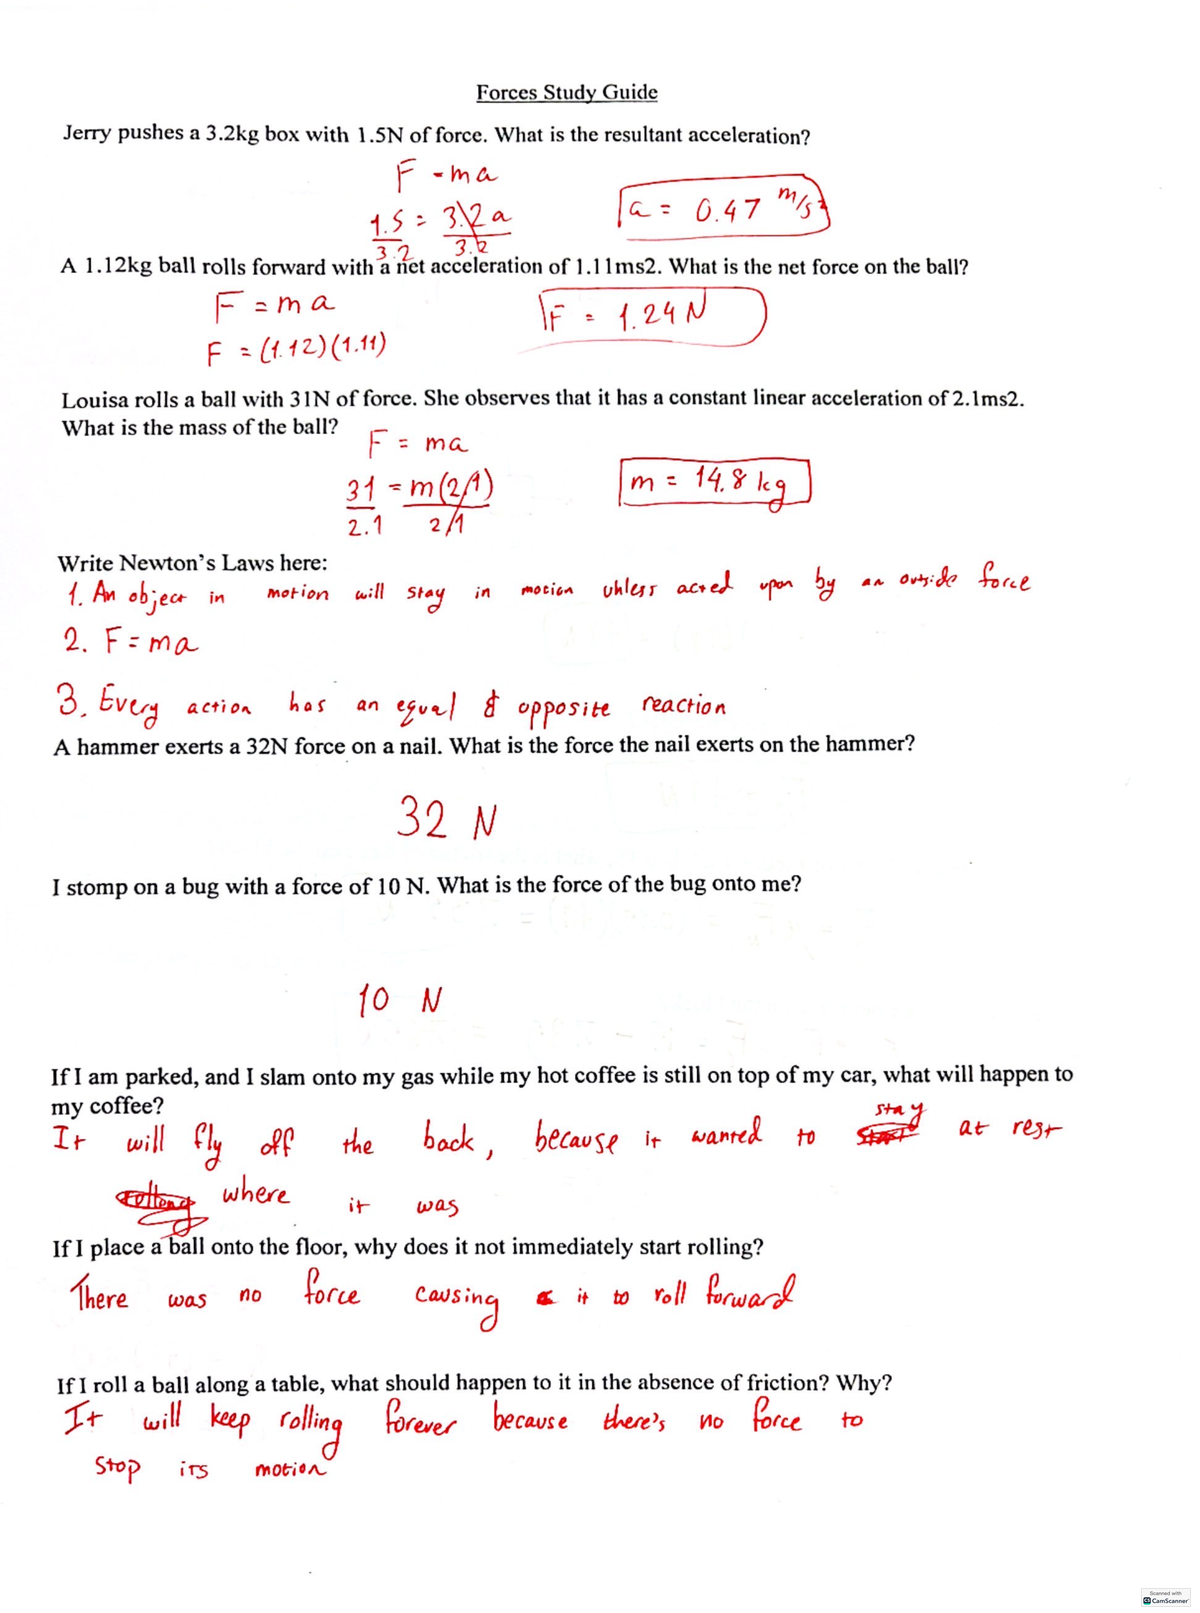 Forces Study Guide
Jerry pushes a 3.2kg box with 1.5N of force. What is the resultant acceleration?
F = ma
1.5 = 3.2 a
3.2 3.2
a = 0.47 m/s²
A 1.12kg ball rolls forward with a net acceleration of 1.11ms2. What is the net force on the ball?
F = ma
F = 1.24 N
F = (1.12)(1.11)
Louisa rolls a ball with 31N of force. She observes that it has a constant linear acceleration of 2.1ms2.
What is the mass of the ball?
F = ma
31 = m(2.1)
2.1 2.1
m = 14.8 kg
Write Newton's Laws here:
1. An object in motion will stay in motion unless acted upon by an outside force
2. F = ma
3. Every action has an equal & opposite reaction
A hammer exerts a 32N force on a nail. What is the force the nail exerts on the hammer?
32 N
I stomp on a bug with a force of 10 N. What is the force of the bug onto me?
10 N
If I am parked, and I slam onto my gas while my hot coffee is still on top of my car, what will happen to
my coffee?
It will fly off the back, because it wanted to stay at rest
where it was
If I place a ball onto the floor, why does it not immediately start rolling?
There was no force causing it to roll forward
If I roll a ball along a table, what should happen to it in the absence of friction? Why?
It will keep rolling forever because there's no force to
stop its motion
Scanned with
CamScanner